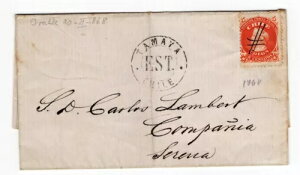 Ovalle 20-II-868
TAMAYA
EST.
CHILE
CHILE
S. D. Carlos Lambert
Compañia
Serena